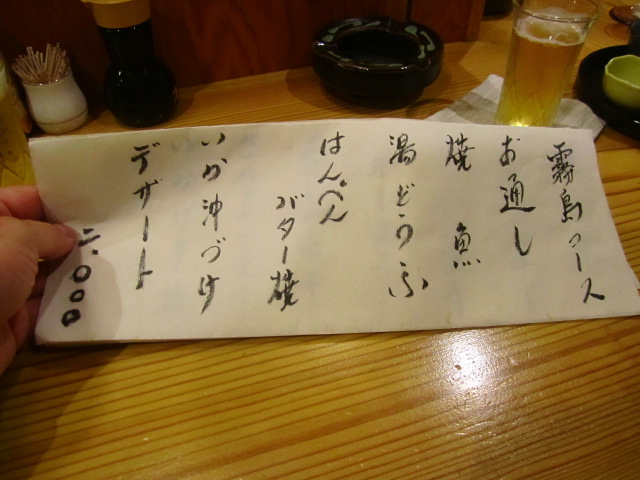 霧島コース
お通し
焼魚
湯どうふ
はんぺん
バター焼
いか沖づけ
デザート
二.000